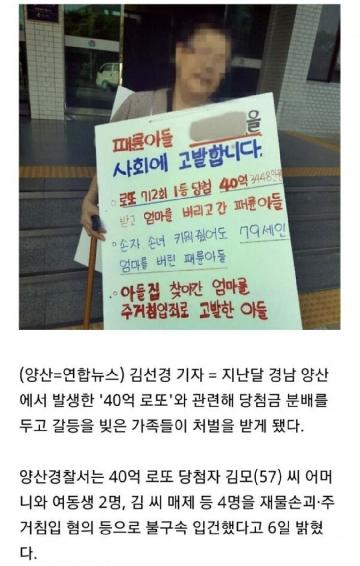 패륜아들 을
사회에 고발합니다.
○ 로또 712회 1등 당첨 40억 3448만원
받고 엄마를 버리고 간 패륜아들
○ 손자. 손녀 키워줬어도 79세인
엄마를 버린 패륜아들
○ 아들집 찾아간 엄마를
주거침입죄로 고발한 아들
(양산=연합뉴스) 김선경 기자 = 지난달 경남 양산
에서 발생한 '40억 로또'와 관련해 당첨금 분배를
두고 갈등을 빚은 가족들이 처벌을 받게 됐다.
양산경찰서는 40억 로또 당첨자 김모(57) 씨 어머
니와 여동생 2명, 김 씨 매제 등 4명을 재물손괴·주
거침입 혐의 등으로 불구속 입건했다고 6일 밝혔
다.